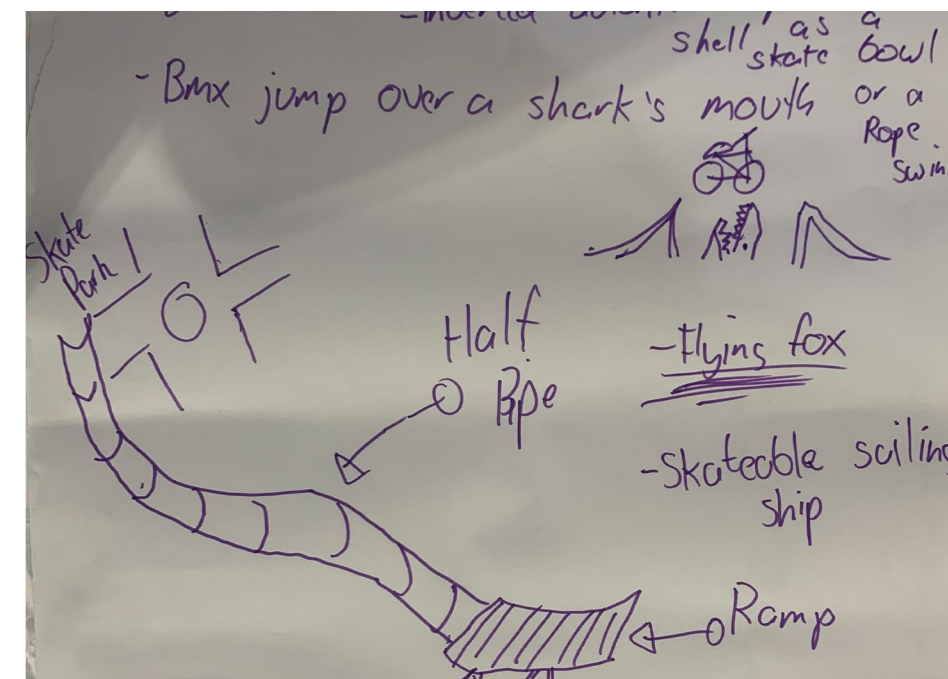 shell as a
skate bowl
- Bmx jump over a shark's mouth or a
Rope
Skate
Park
Half
Pipe
- Flying fox
- Skateable sailing
ship
Ramp